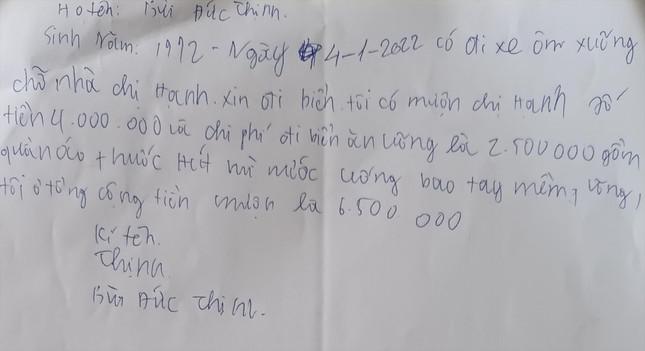 Họ tên: Bùi Đức Thịnh.
Sinh Năm: 1972 - Ngày 4-1-2022 có đi xe ôm xuống
chỗ nhà chị Hạnh. xin đi biển. tôi có mượn chị Hạnh số
tiền 4.000.000 là chi phí đi biển ăn uống là 2.500 000 gồm
quần áo thuốc Hút mì nước uống bao tay mềm,
tôi tổng cộng tiền mượn là 6.500 000
Kí tên.
Thịnh
Bùi Đức Thịnh.